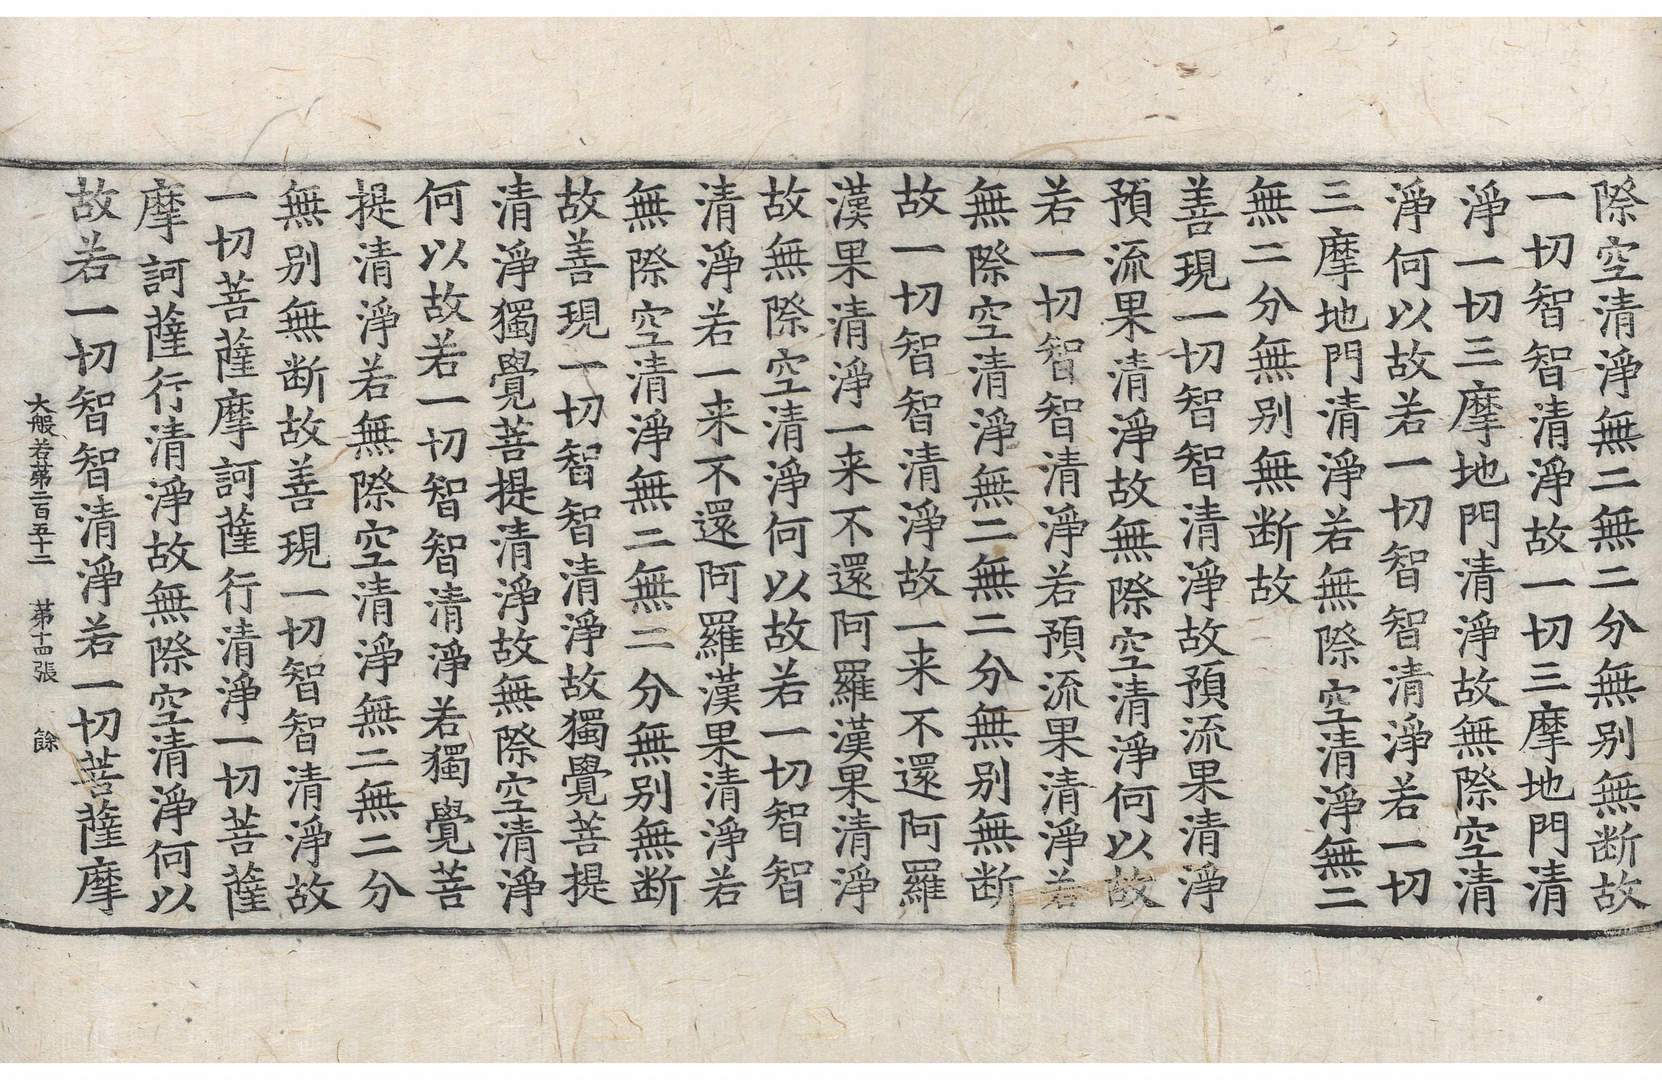 際空清淨無二無二分無别無断故
一切智智清淨故一切三摩地門清
淨一切三摩地門清淨故無際空清
淨何以故若一切智智清淨若一切
三摩地門清淨若無際空清淨無二
無二分無别無断故
善現一切智智清淨故預流果清淨
預流果清淨故無際空清淨何以故
若一切智智清淨若預流果清淨若
無際空清淨無二無二分無别無断
故一切智智清淨故一来不還阿羅
漢果清淨一来不還阿羅漢果清淨
故無際空清淨何以故若一切智智
清淨若一来不還阿羅漢果清淨若
無際空清淨無二無二分無别無断
故善現一切智智清淨故獨覺菩提
清淨獨覺菩提清淨故無際空清淨
何以故若一切智智清淨若獨覺菩
提清淨若無際空清淨無二無二分
無别無断故善現一切智智清淨故
一切菩薩摩訶薩行清淨一切菩薩
摩訶薩行清淨故無際空清淨何以
故若一切智智清淨若一切菩薩摩
大般若苐二百五十二 苐十四張 餘